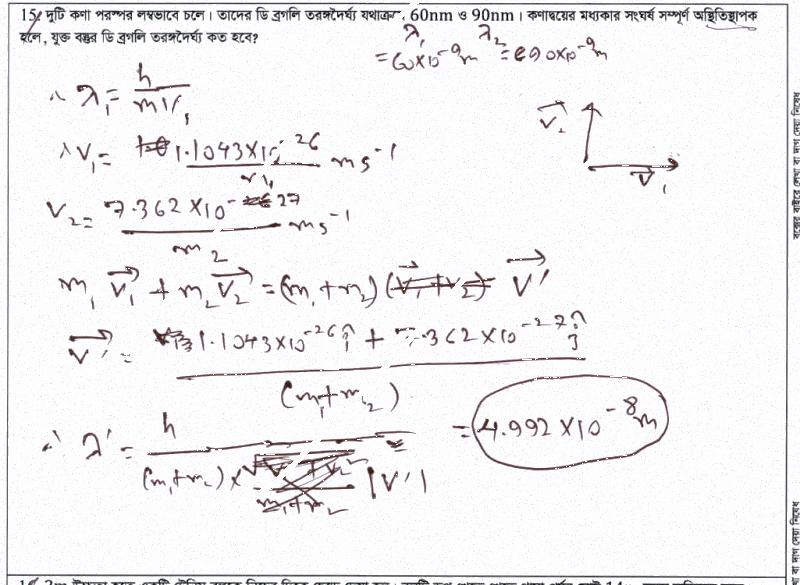 15. দুটি কণা পরস্পর লম্বভাবে চলে। তাদের ডি ব্রগলি তরঙ্গদৈর্ঘ্য যথাক্রমে 60nm ও 90nm। কণাদ্বয়ের মধ্যকার সংঘর্ষ সম্পূর্ণ অস্থিতিস্থাপক
হলে, যুক্ত বস্তুর ডি ব্রগলি তরঙ্গদৈর্ঘ্য কত হবে?
λ₁ = 60×10⁻⁹m λ₂ = 90×10⁻⁹m
∴ λ₁ = h / mV₁
∴ V₁ = 1.1043×10⁻²⁶ / m₁ ms⁻¹
V₂ = 7.362×10⁻²⁷ / m₂ ms⁻¹
V₂
V₁
m₁V₁ + m₂V₂ = (m₁+m₂) V'
V' = 1.1043×10⁻²⁶ î + 7.362×10⁻²⁷ ĵ / (m₁+m₂)
∴ λ' = h / (m₁+m₂) × |V'| = 4.992×10⁻⁸m
বক্সের বাইরে লেখা বা দাগ দেয়া নিষেধ
বা দাগ দেয়া নিষেধ